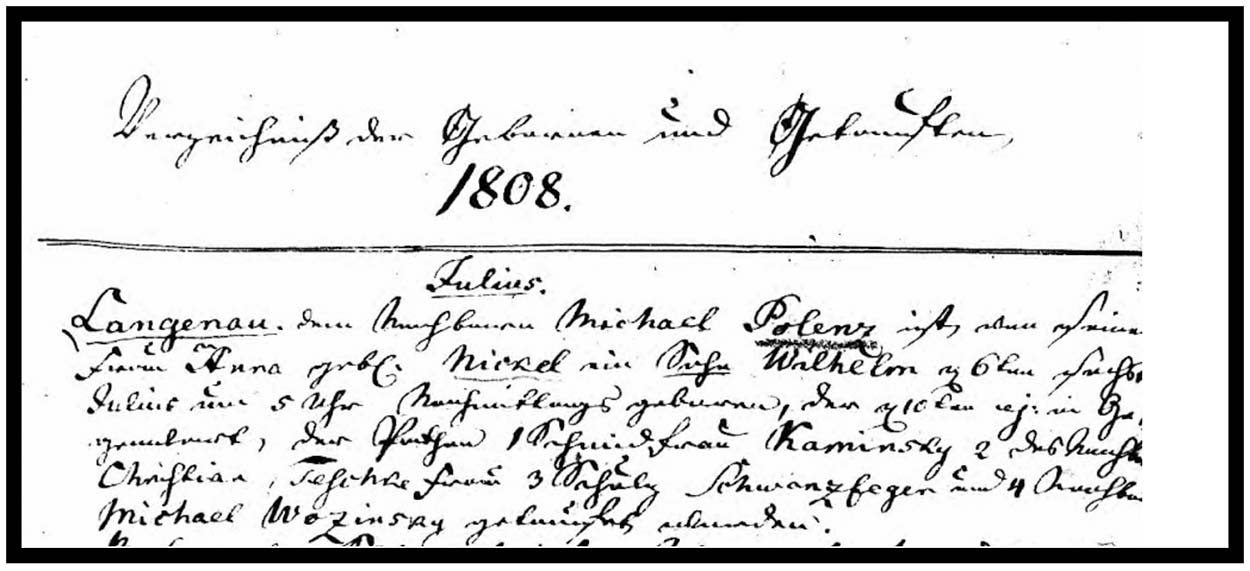 Verzeichniß der Gebornen und Getauften,
1808.
Julius.
Langenau. dem Nachbaren Michael Polenz ist, von seine
Frau Anna geb. Nickel ein Sohn Wilhelm 6ten sechs
Julius um 5 Uhr Nachmittags geboren, der 10ten ej: in Ge,
genwart, der Pathen 1 Schmid Frau Kaminsky 2 des Nachb
Christian, Teschke Frau 3 Schulz Schwanzfeger und 4 Nachba
Michael Wozinsky getaufet worden.